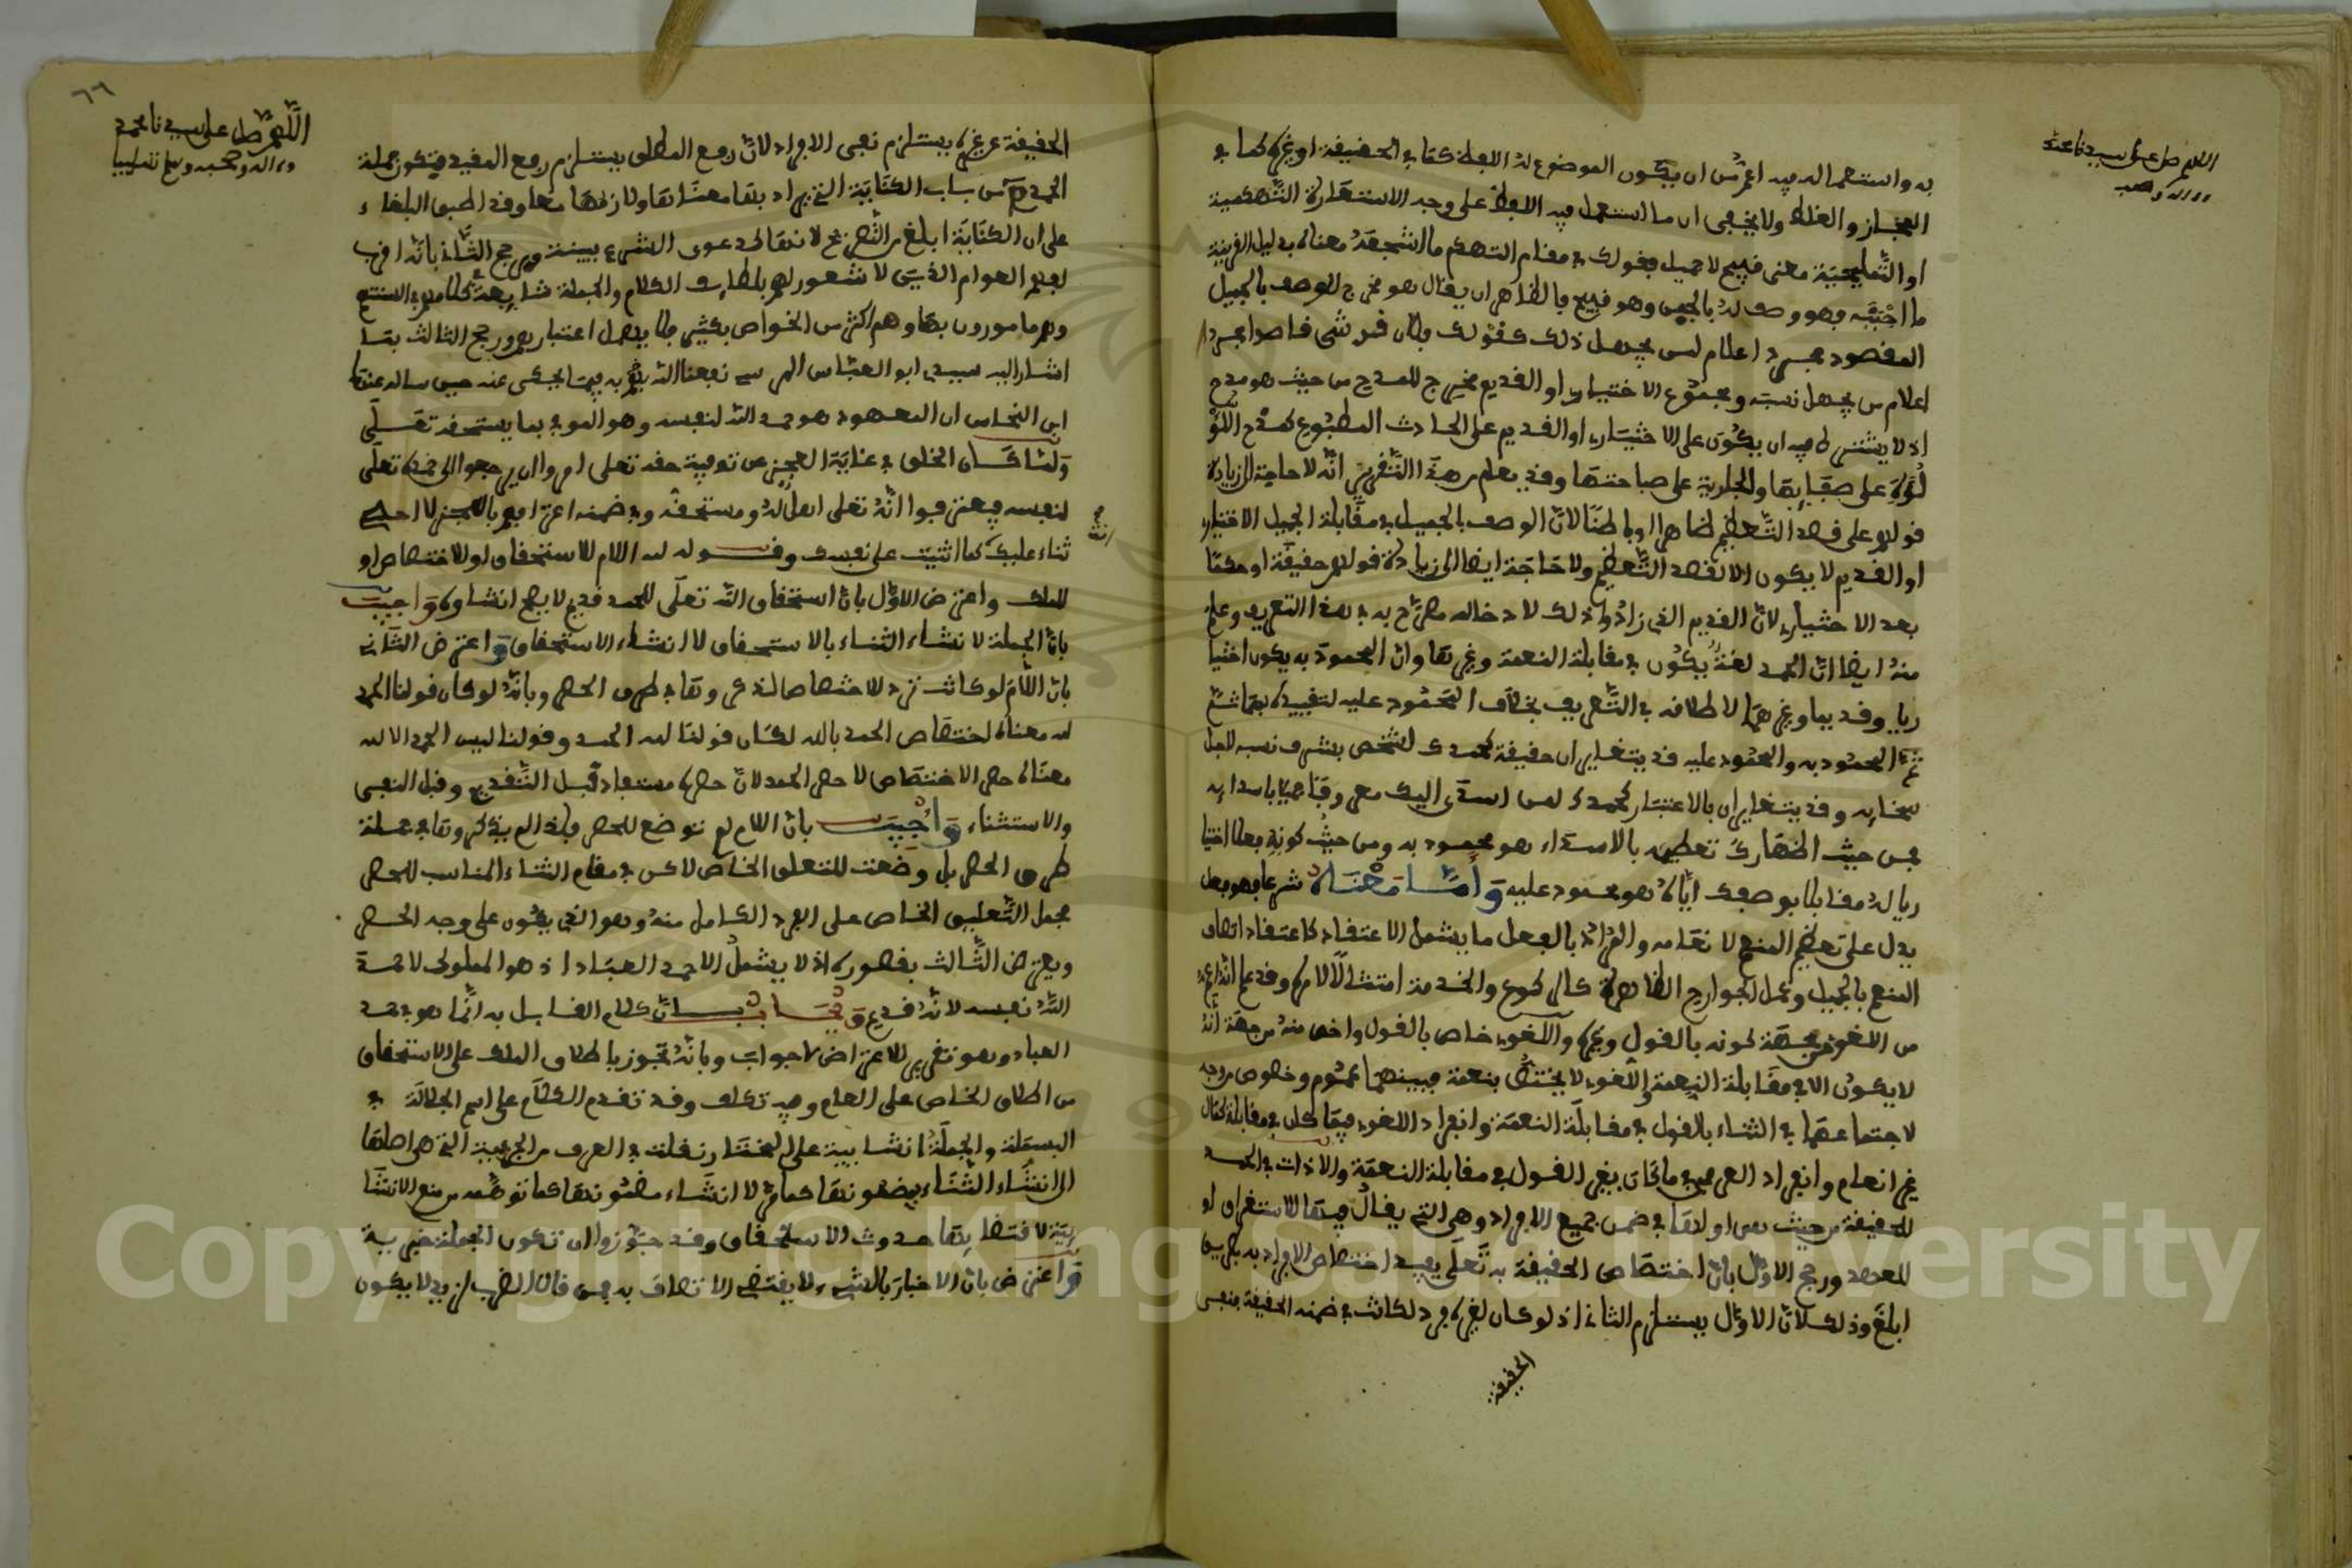 اللهم صل على سيدنا محمد
وءاله وصحبه
به واستعماله فيه اعم من ان يكون الموضوع له اللفظ كما في الحقيقة او غيره كما في
المجاز والغلط ولا يخفى ان ما استعمل فيه اللفظ على وجه الاستعارة التهكمية
او التمليحية معنى قبيح لا جميل فقولك في مقام التهكم ما اشجعه معناه بدليل القرينة
ما اجبنه فهو وصف له بالجبن وهو قبيح فالظاهر ان يقال هو مخرج للوصف بالجميل
المقصود مجرد اعلام لمن يجهل ذلك كقولك فلان
اعلام من يجهل نسبه ومجموع الاختياري او القديم مخرج للمدح من حيث هو مدح
اذ لا يشترط فيه ان يكون على الاختياري او القديم على الحادث المطبوع كمدح اللؤ
لؤة على صفايها والجارية على صباحتها وقد يعلم من هذا التقرير انه لا حاجة الى زيادة
قولهم على قصد التعظيم ظاهرا وباطنا لان الوصف بالجميل في مقابلة الجميل الاختياري
او القديم لا يكون الا لقصد التعظيم ولا حاجة ايضا الى زيادة قولهم حقيقة او حكما
بعد الاختياري لان القديم الذي زادوا ذلك لادخاله مصرح به في هذا التعريف وعلم
منه ايضا ان الحمد لغة يكون في مقابلة النعمة وغيرها وان المحمود به يكون اختيا
ريا وقديما وغيرهما لاطلاقه في التعريف بخلاف المحمود عليه لتقييده بهما ثم
المحمود به والمحمود عليه قد يتغايران حقيقة كحمدك لشخص بشرف نسبه لاجل
سخايه وقد يتغايران بالاعتبار كحمدك لمن اسدى اليك معروفا باسدايه
فمن حيث اظهارك تعظيمه بالاسداء هو محمود به ومن حيث كونه فعلا اختيا
ريا له مقابلا بوصفك اياه هو محمود عليه واما معناه شرعا فهو فعل
يدل على تعظيم المنعم لانعامه والمراد بالفعل ما يشمل الاعتقاد كاعتقاد اتصاف
المنعم بالجميل وعمل الجوارح الظاهرة كالركوع والخدمة امتثالا لامره وقد علم انه اعم
من اللغوي من جهة كونه بالقول وغيره واللغوي خاص بالقول واخص منه من جهة انه
لا يكون الا في مقابلة النعمة واللغوي لا يختص بنعمة فبينهما عموم وخصوص من وجه
لاجتماعهما في الثناء بالقول في مقابلة النعمة وانفراد اللغوي فيما كان في مقابلة كمال
غير انعام وانفراد العرفي فيما كان بغير القول في مقابلة النعمة وال اذات في الحمد
للحقيقة من حيث هي او لها في ضمن جميع الافراد وهي التي يقال فيها للاستغراق او
للعهد ورجح الاول بان اختصاص الحقيقة به تعلى يفيد اختصاص الافراد به بطريق
ابلغ وذلك لان الاول يستلزم الثاني اذ لو كان لغيره فرد لكانت في ضمنه الحقيقة فنفي
الحقيقة
٦٦
اللهم صل على سيدنا محمد
وءاله وصحبه وسلم تسليما
الحقيقة عن غيره يستلزم نفي الافراد لان رفع المطلق يستلزم رفع المقيد فتكون جملة
الحمد من باب الكناية التي يراد بها معناها ولازمها معا وقد اطبق البلغاء
على ان الكناية ابلغ من التصريح لانها كدعوى الشيء ببينة ورجح الثاني بانه اقرب
لفهم العوام الذين لا شعور لهم بلطايف الكلام والجملة شايعة
وهم مامورون بها وهم اكثر من الخواص بكثير فلا يهمل اعتبارهم ورجح الثالث بما
اشار اليه سيدي ابو العباس المرسي نفعنا الله به فيما يحكى عنه حين ساله عنها
ابن النحاس ان المعهود هو حمد الله لنفسه وهو الموفي بما يستحقه تعلى
ولما كان الخلق في غاية العجز عن توفية حقه تعلى امروا ان يرجعوا الى حمده تعلى
لنفسه فيعترفوا انه تعلى اهل له ومستحقه وفي ضمنه اعترافهم بالعجز لا احصي
ثناء عليك كما اثنيت على نفسك وقوله لله اللام للاستحقاق او للاختصاص او
للملك واعترض الاول بان استحقاق الله تعلى للحمد قديم لا يصح انشاوه واجيب
بان الجملة لانشاء الثناء بالاستحقاق لا انشاء الاستحقاق واعترض الثاني
بان اللام لو كانت ترد للاختصاص لذكروها في طرق الحصر وبانه لو كان قولنا الحمد
لله معناه اختصاص الحمد بالله لكان قولنا لله الحمد وقولنا ليس الحمد الا لله
معناه حصر الاختصاص لا حصر الحمد لان حصره مستفاد قبل التقديم وقبل النفي
والاستثناء واجيب بان اللام لم توضع للحصر فلذا لم يذكروها في جملة
طرق الحصر بل وضعت للتعلق الخاص لاكن في مقام الثناء المناسب للحصر
يحمل التعليق الخاص على الفرد الكامل منه وهو الذي يكون على وجه الحصر
ويعترض الثالث بقصوره اذ لا يشمل الا حمد العباد اذ هو المملوك لا حمد
الله نفسه لانه قديم ويجاب بان كلام القايل به انما هو في حمد
العباد وهو تقرير للاعتراض لا جواب وبانه تجوز باطلاق الملك على الاستحقاق
من اطلاق الخاص على العام وفيه تكلف وقد تقدم الكلام على اسم الجلالة في
البسملة والجملة انشايية على المختار نقلت في العرف من الخبرية التي هي اصلها
الى انشاء الثناء بمضمونها كما مر لا انشاء مضمونها كما توهمه من منع الانشا
يية لاقتضايها حدوث الاستحقاق وقد جوزوا ان تكون الجملة خبرية
واعترض بان الاخبار بالشيء لا يقتضي الاتصاف به فمن قال الضرب لزيد لا يكون
Copyright © King Saud University